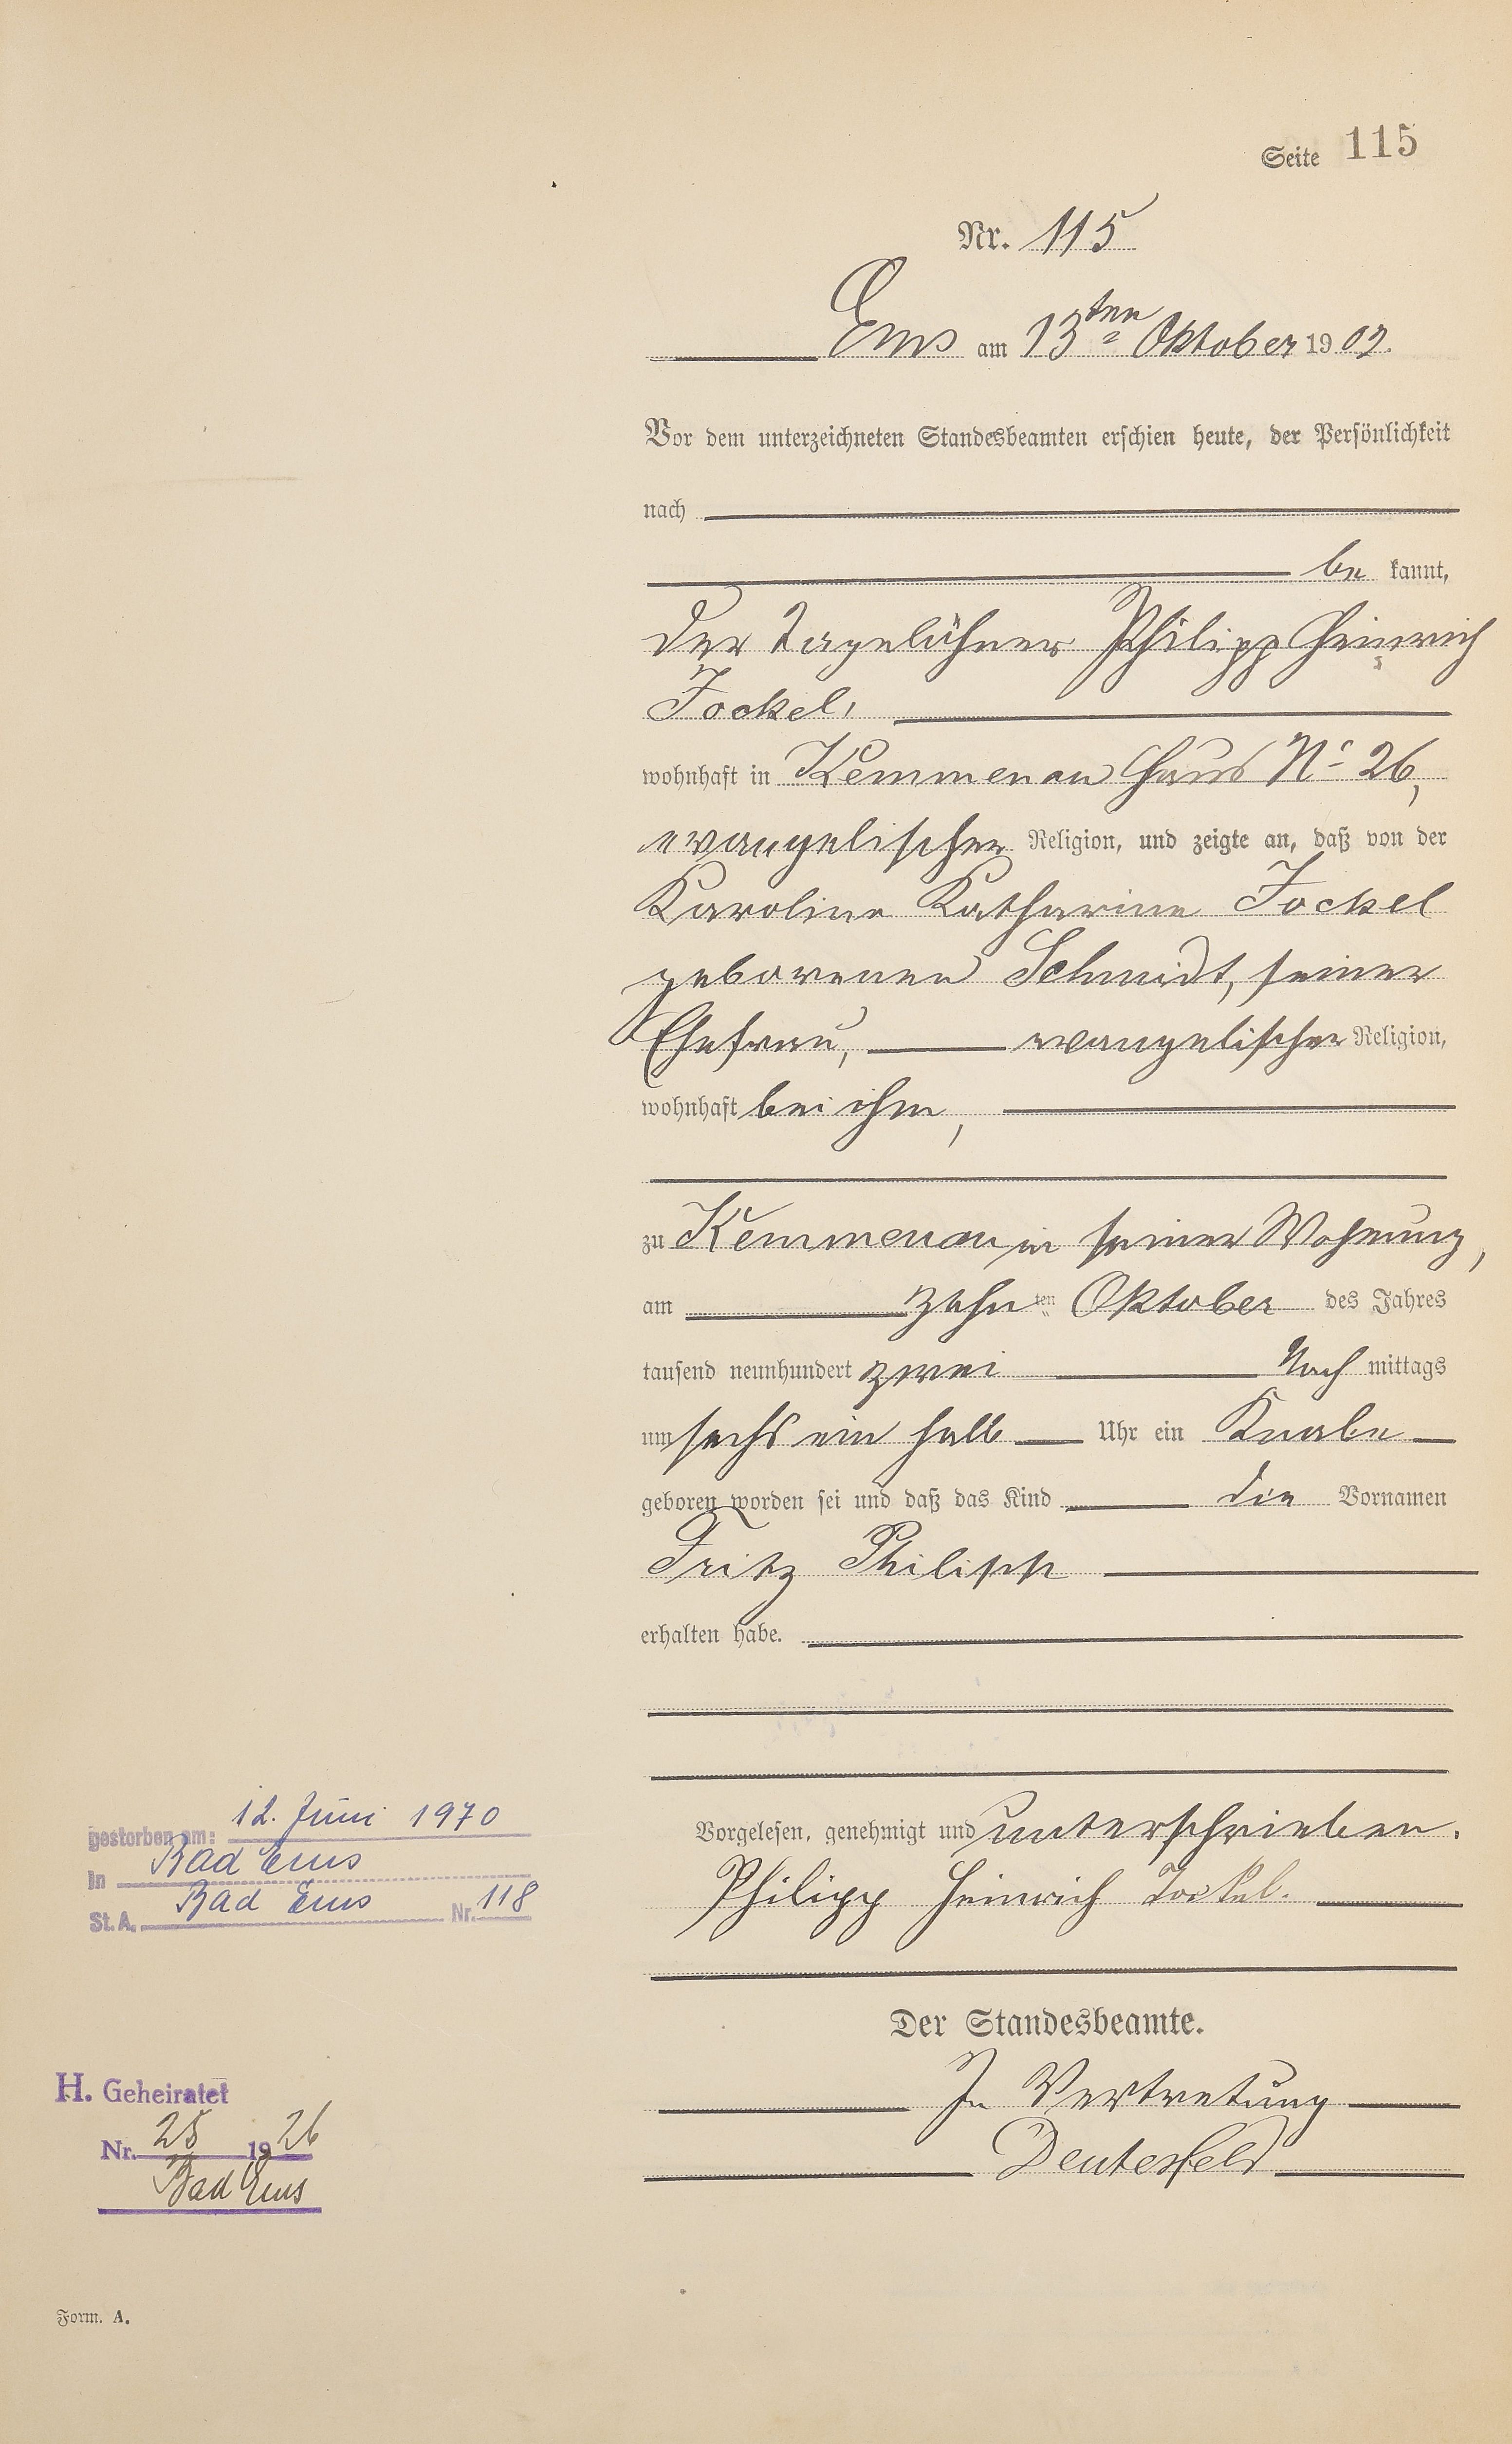 Seite 115
Nr. 115
Ems am 13ten Oktober 1902.
Vor dem unterzeichneten Standesbeamten erschien heute, der Persönlichkeit
nach
be kannt,
der Tagelöhner Philipp Heinrich
Jockel,
wohnhaft in Kemmenau Haus No 26,
evangelischer Religion, und zeigte an, daß von der
Karoline Katharine Jockel
geborenen Schmidt, seiner
Ehefrau, evangelischer Religion,
wohnhaft bei ihm,
zu Kemmenau in seiner Wohnung,
am zehnten Oktober des Jahres
tausend neunhundert zwei Nach mittags
um sechs ein halb Uhr ein Knabe
geboren worden sei und daß das Kind die Vornamen
Fritz Philipp
erhalten habe.
Vorgelesen, genehmigt und unterschrieben.
Philipp Heinrich Jockel.
Der Standesbeamte.
In Vertretung
Deutesfeld
gestorben am: 12. Juni 1970
in Bad Ems
St. A. Bad Ems Nr. 118
H. Geheiratet
Nr. 25 1926
Bad Ems
Form. A.